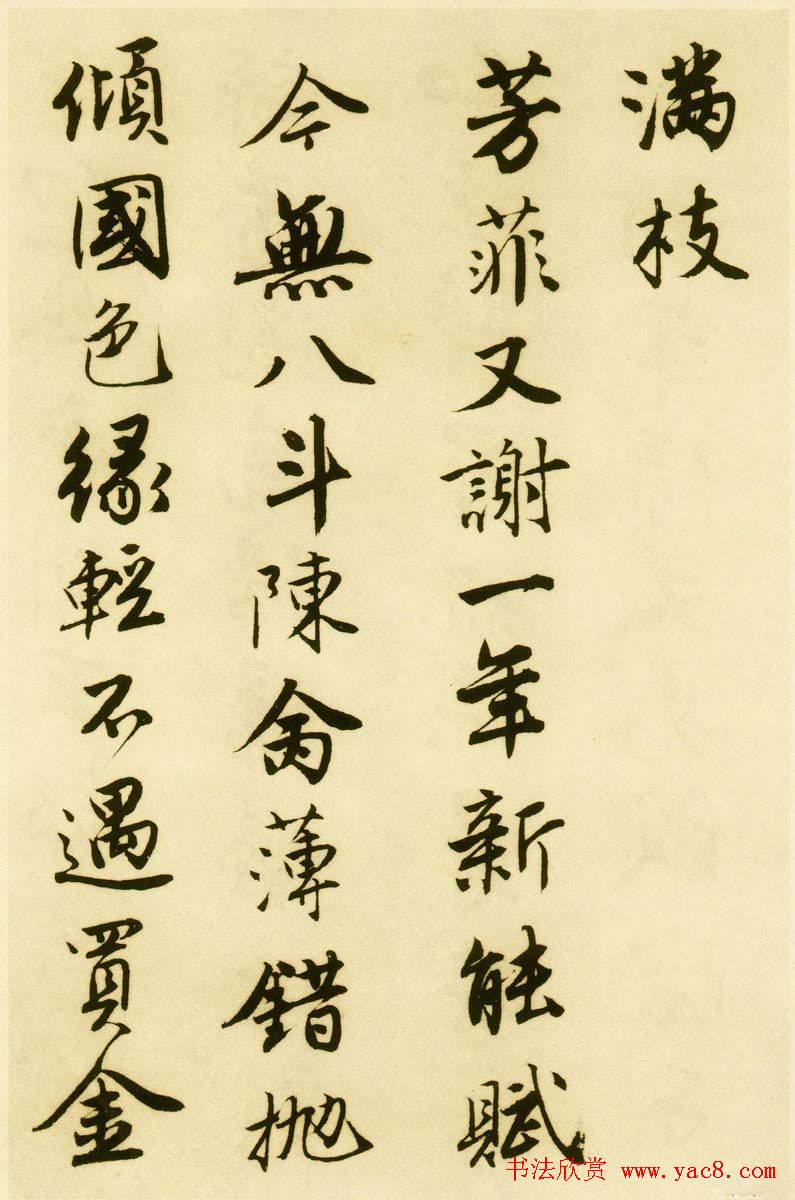 满枝
芳菲又謝一年新能賦
今無八斗陳命薄錯抛
傾國色緣輕不遇買金
书法欣赏 www.yac8.com